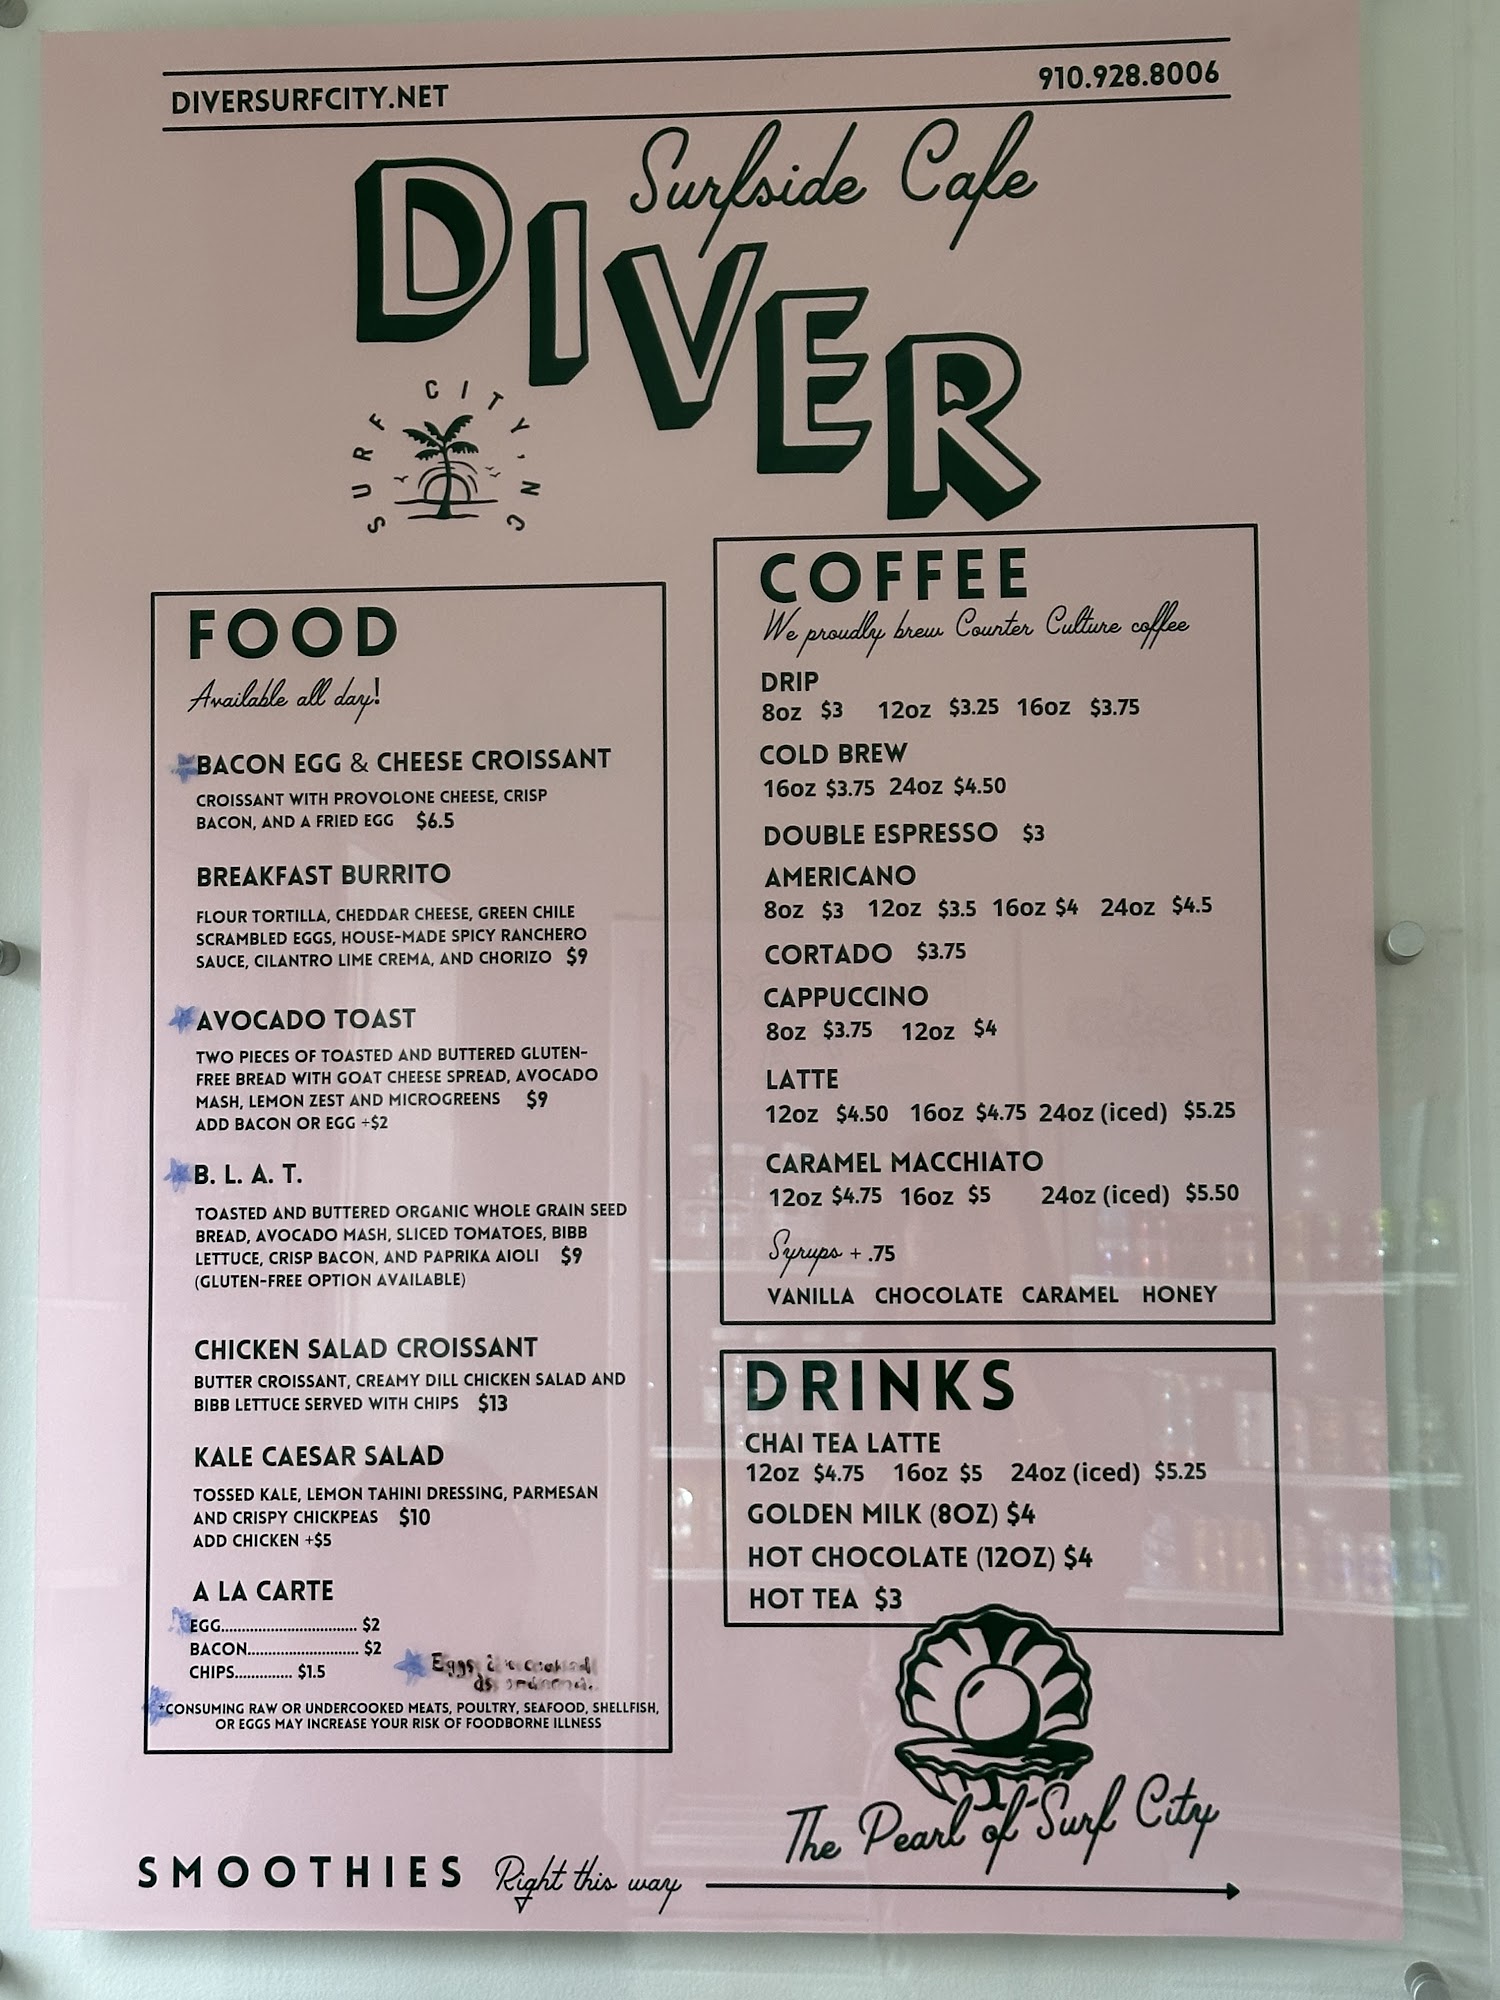 DIVERSURFCITY.NET
910.928.8006
Surfside Cafe
DIVER
SURF CITY, NC
FOOD
Available all day!
BACON EGG & CHEESE CROISSANT
CROISSANT WITH PROVOLONE CHEESE, CRISP
BACON, AND A FRIED EGG $6.5
BREAKFAST BURRITO
FLOUR TORTILLA, CHEDDAR CHEESE, GREEN CHILE
SCRAMBLED EGGS, HOUSE-MADE SPICY RANCHERO
SAUCE, CILANTRO LIME CREMA, AND CHORIZO $9
AVOCADO TOAST
TWO PIECES OF TOASTED AND BUTTERED GLUTEN-
FREE BREAD WITH GOAT CHEESE SPREAD, AVOCADO
MASH, LEMON ZEST AND MICROGREENS $9
ADD BACON OR EGG +$2
B. L. A. T.
TOASTED AND BUTTERED ORGANIC WHOLE GRAIN SEED
BREAD, AVOCADO MASH, SLICED TOMATOES, BIBB
LETTUCE, CRISP BACON, AND PAPRIKA AIOLI $9
(GLUTEN-FREE OPTION AVAILABLE)
CHICKEN SALAD CROISSANT
BUTTER CROISSANT, CREAMY DILL CHICKEN SALAD AND
BIBB LETTUCE SERVED WITH CHIPS $13
KALE CAESAR SALAD
TOSSED KALE, LEMON TAHINI DRESSING, PARMESAN
AND CRISPY CHICKPEAS $10
ADD CHICKEN +$5
A LA CARTE
EGG................................. $2
BACON........................... $2
CHIPS.............. $1.5
Eggs are cooked
as ordered.
*CONSUMING RAW OR UNDERCOOKED MEATS, POULTRY, SEAFOOD, SHELLFISH,
OR EGGS MAY INCREASE YOUR RISK OF FOODBORNE ILLNESS
COFFEE
We proudly brew Counter Culture coffee
DRIP
8oz $3 12oz $3.25 16oz $3.75
COLD BREW
16oz $3.75 24oz $4.50
DOUBLE ESPRESSO $3
AMERICANO
8oz $3 12oz $3.5 16oz $4 24oz $4.5
CORTADO $3.75
CAPPUCCINO
8oz $3.75 12oz $4
LATTE
12oz $4.50 16oz $4.75 24oz (iced) $5.25
CARAMEL MACCHIATO
12oz $4.75 16oz $5 24oz (iced) $5.50
Syrups + .75
VANILLA CHOCOLATE CARAMEL HONEY
DRINKS
CHAI TEA LATTE
12oz $4.75 16oz $5 24oz (iced) $5.25
GOLDEN MILK (8OZ) $4
HOT CHOCOLATE (12OZ) $4
HOT TEA $3
The Pearl of Surf City
SMOOTHIES Right this way